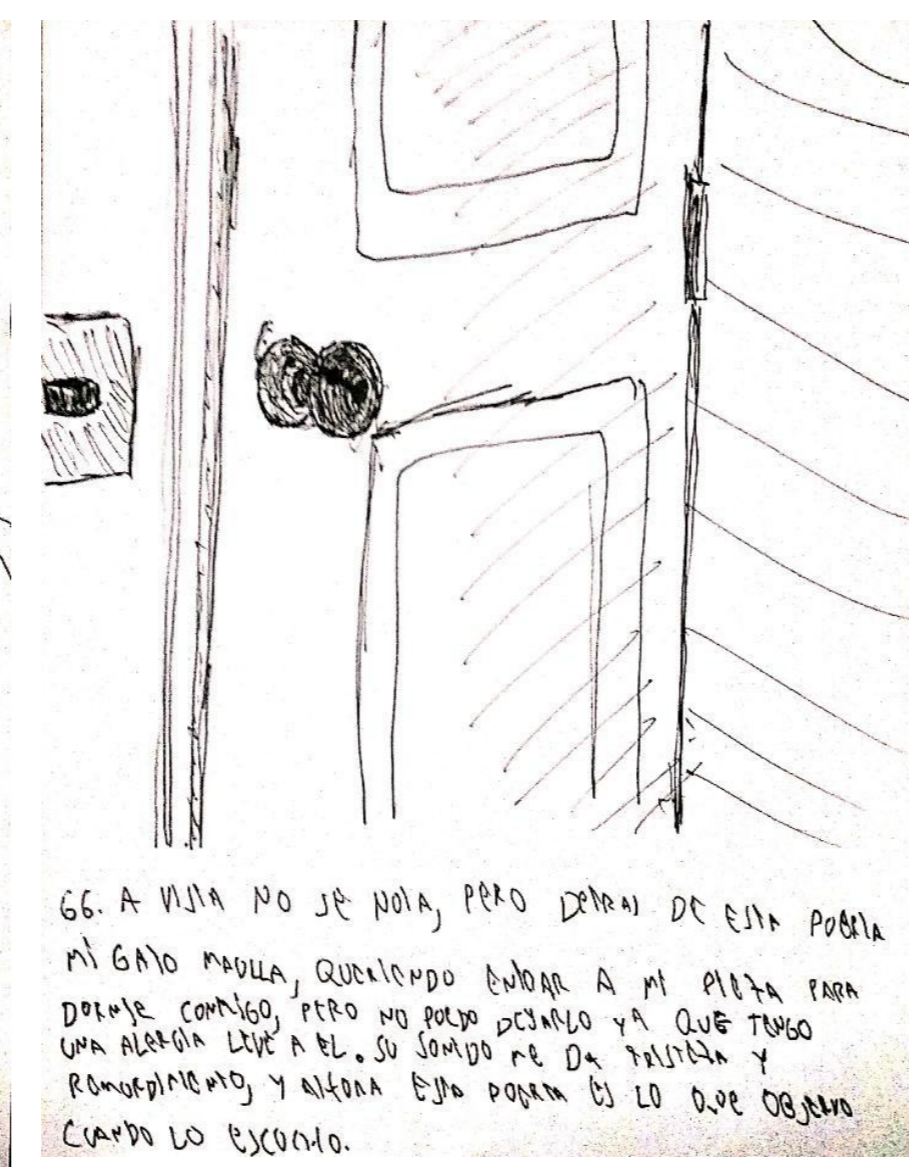 66. A VISTA NO SE NOTA, PERO DETRAS DE ESTA PUERTA
MI GATO MAULLA, QUERIENDO ENTRAR A MI PIEZA PARA
DORMIR CONMIGO, PERO NO PUEDO DEJARLO YA QUE TENGO
UNA ALERGIA LEVE A EL. SU SONIDO ME DA TRISTEZA Y
REMORDIMIENTO, Y AHORA ESTA PUERTA ES LO QUE OBSERVO
CUANDO LO ESCUCHO.